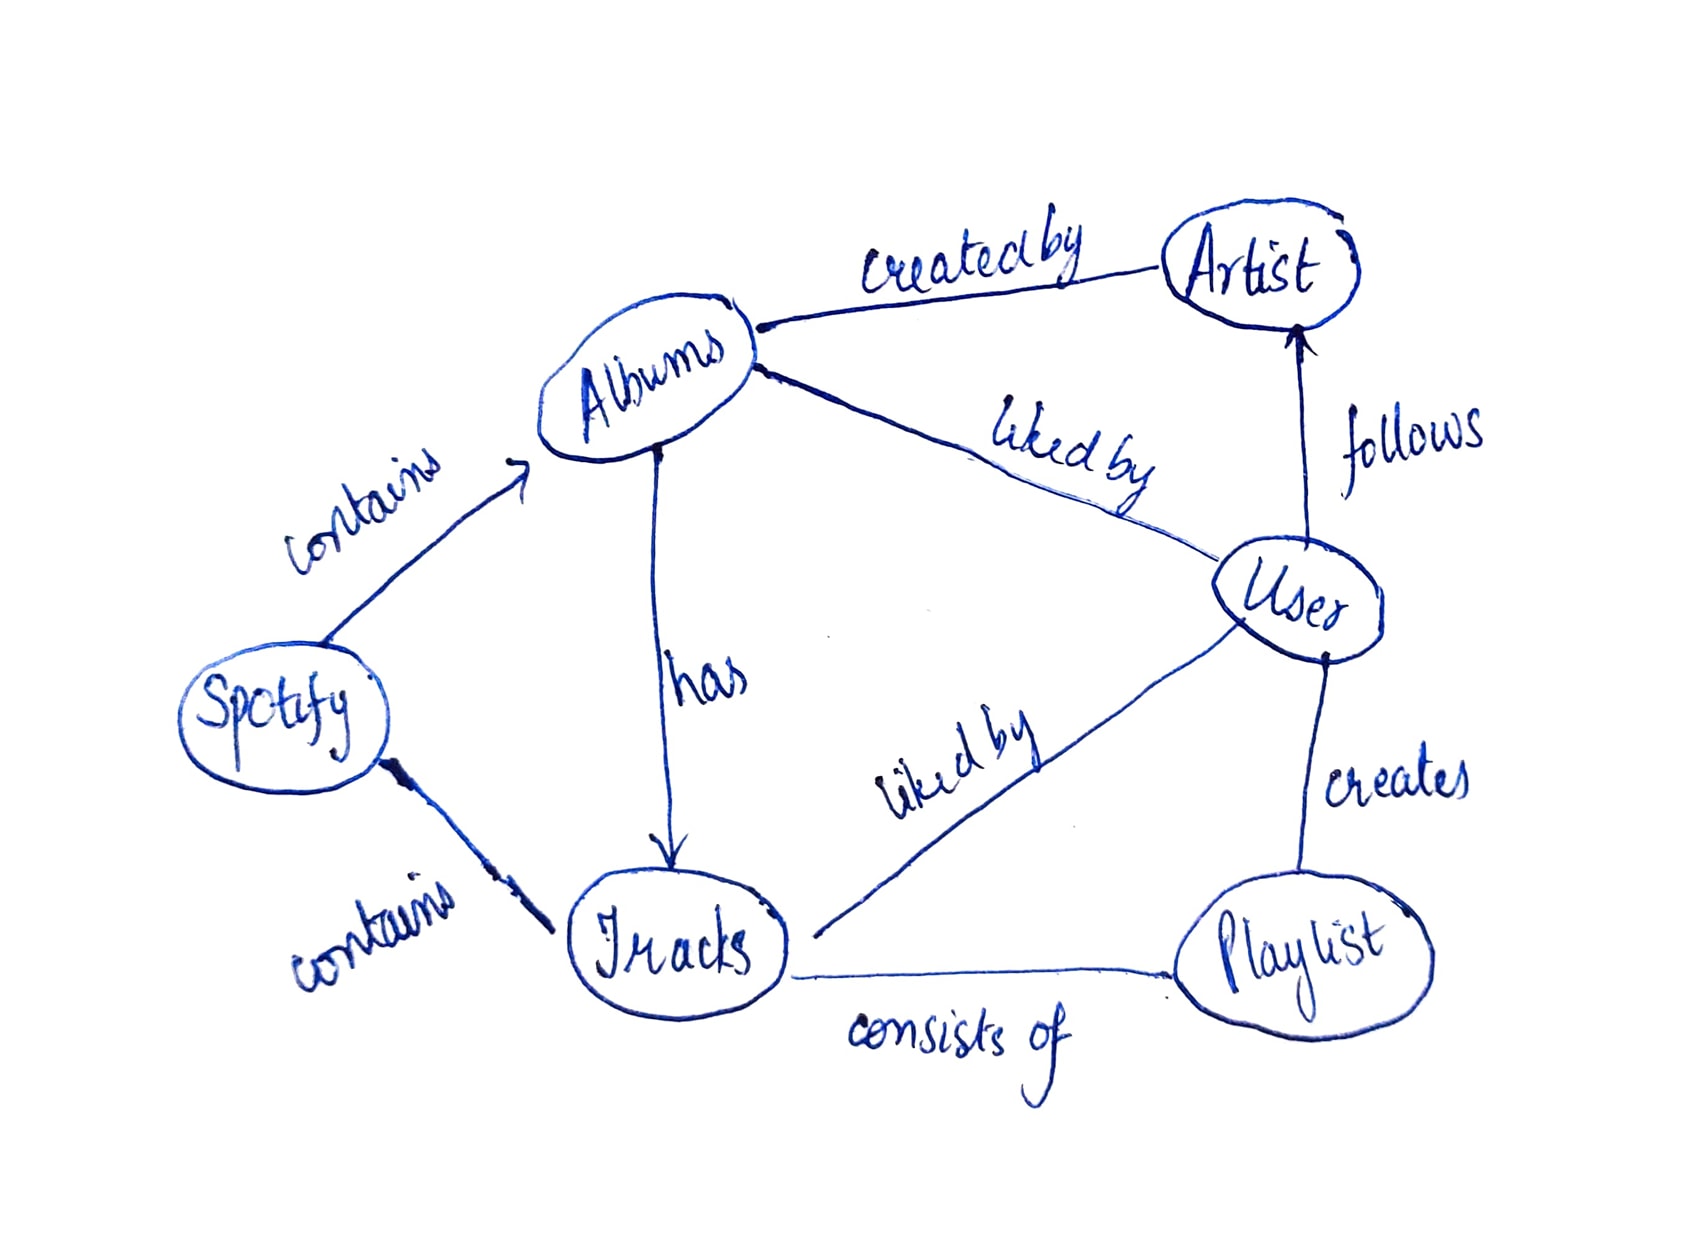 created by
Artist
Albums
liked by
follows
contains
User
has
Spotify
liked by
creates
contains
Tracks
Playlist
consists of